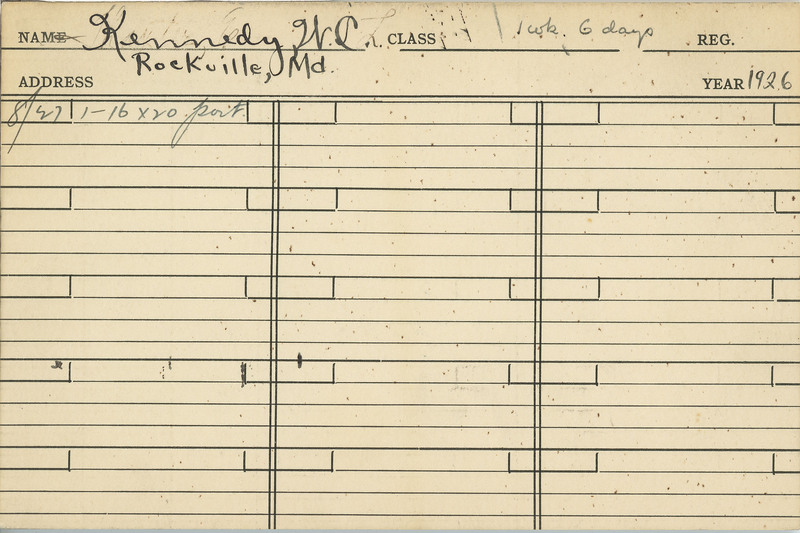 NAME Kennedy, W. CLASS 1 wk. 6 days REG.
Rockville, Md.
ADDRESS YEAR 1926
8/27 1-16 x 20 port.